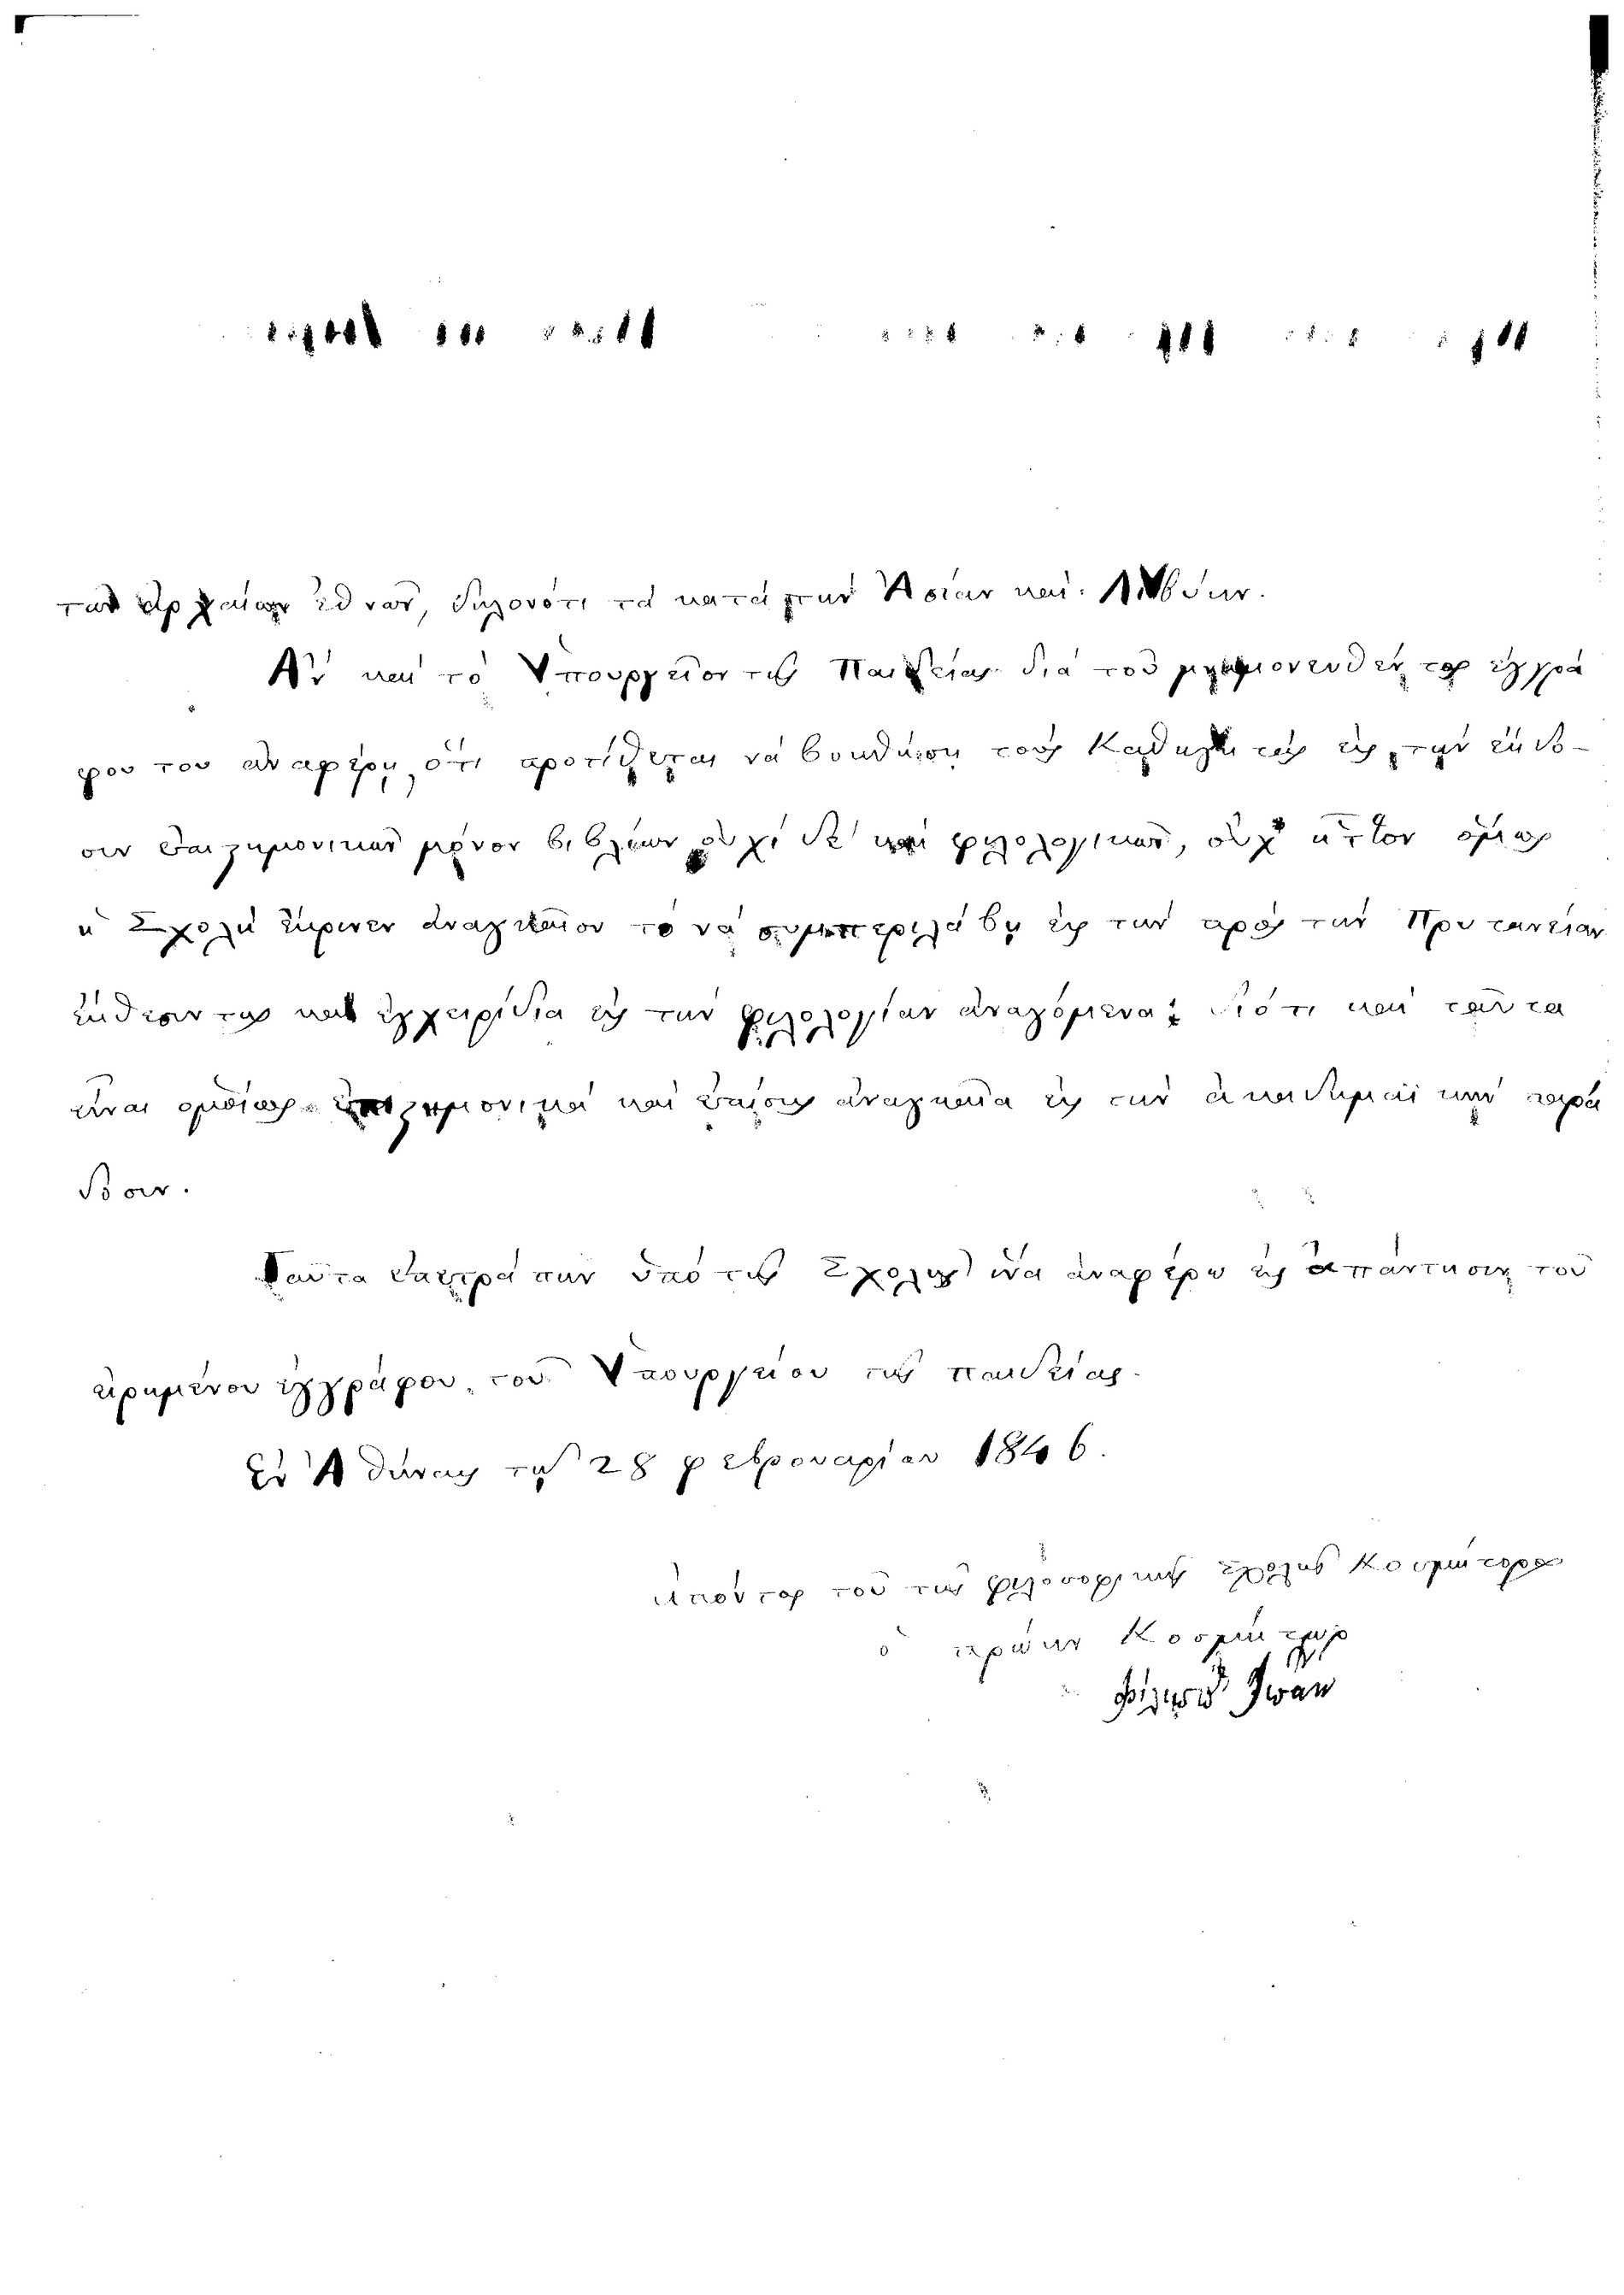 τῶν ἀρχαίων ἐθνῶν, δηλονότι τὰ κατὰ τὴν Ἀσίαν καὶ Λιβύην.
Ἂν καὶ τὸ Ὑπουργεῖον τῆς Παιδείας διὰ τοῦ μνημονευθέντος ἐγγρά
φου του ἀναφέρῃ, ὅτι προτίθεται νὰ βοηθήσῃ τοὺς Καθηγητὰς εἰς τὴν ἔκδο-
σιν ἐπιστημονικῶν μόνον βιβλίων οὐχὶ δὲ καὶ φιλολογικῶν, οὐχ ἧττον ὅμως
ἡ Σχολὴ ἔκρινεν ἀναγκαῖον τὸ νὰ συμπεριλάβῃ εἰς τὴν πρὸς τὴν Πρυτανείαν
ἔκθεσίν της καὶ ἐγχειρίδια εἰς τὴν φιλολογίαν ἀναγόμενα· διότι καὶ ταῦτα
εἶναι ὁμοίως ἐπιστημονικὰ καὶ ἐπίσης ἀναγκαῖα εἰς τὴν ἀκαδημαϊκὴν παρά
δοσιν.
Ταῦτα ἐπετράπην ὑπὸ τῆς Σχολῆς ἵνα ἀναφέρω εἰς ἀπάντησιν τοῦ
εἰρημένου ἐγγράφου τοῦ Ὑπουργείου τῆς παιδείας.
Ἐν Ἀθήναις τῇ 28 φεβρουαρίου 1846.
Ἀπόντος τοῦ τῆς φιλοσοφικῆς Σχολῆς Κοσμήτορος
ὁ πρώην Κοσμήτωρ
Φίλιππος Ἰωάν